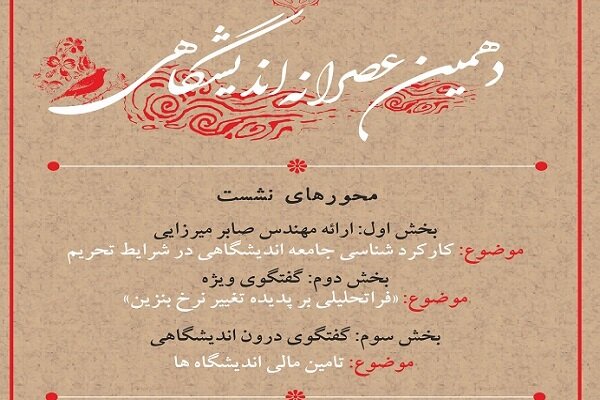 دهمین عصرانه اندیشگاهی
محورهای نشست
بخش اول: ارائه مهندس صابر میرزایی
موضوع: کارکرد شناسی جامعه اندیشگاهی در شرایط تحریم
بخش دوم: گفتگوی ویژه
موضوع: «فراتحلیلی بر پدیده تغییر نرخ بنزین»
بخش سوم: گفتگوی درون اندیشگاهی
موضوع: تامین مالی اندیشگاه ها